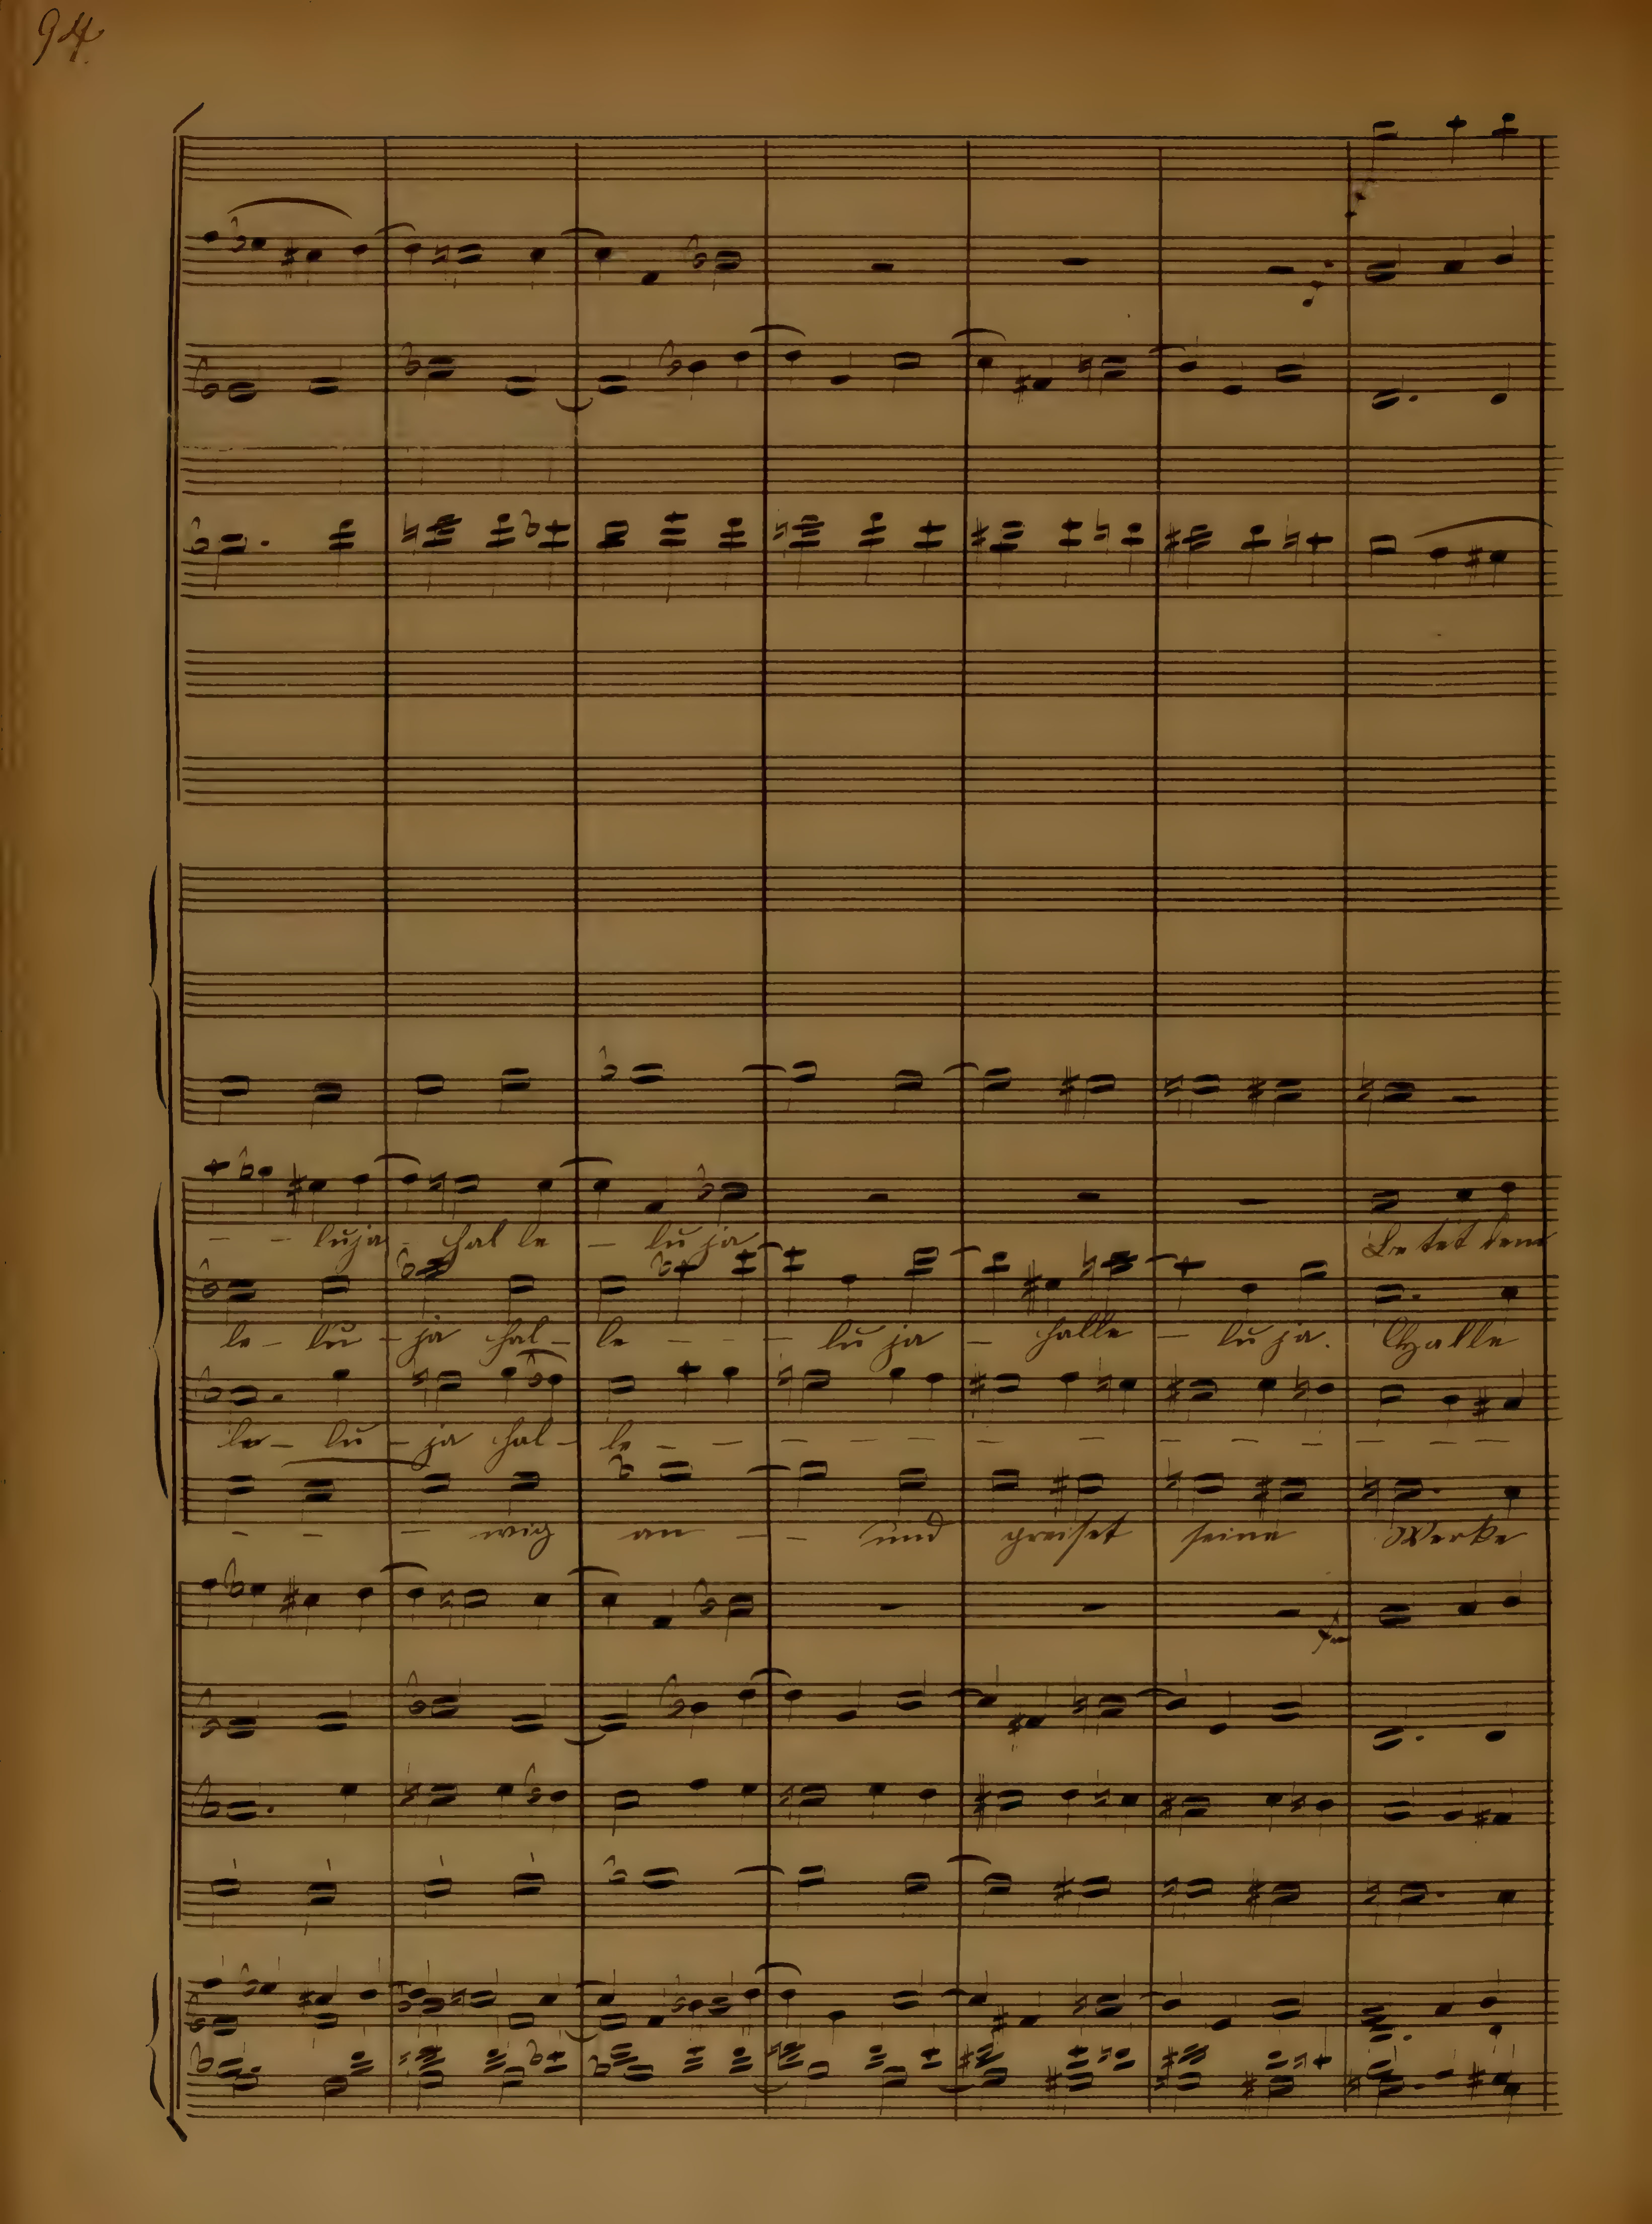 94.
- - luja - hal le - lu ja Be tet dem
le - lu - ja hal - le - - - lu ja - halle - lu ja. Halle
le - lu - ja hal - le - - - - - - - - - - - -
- - - wig an - - und preiset seine Werke